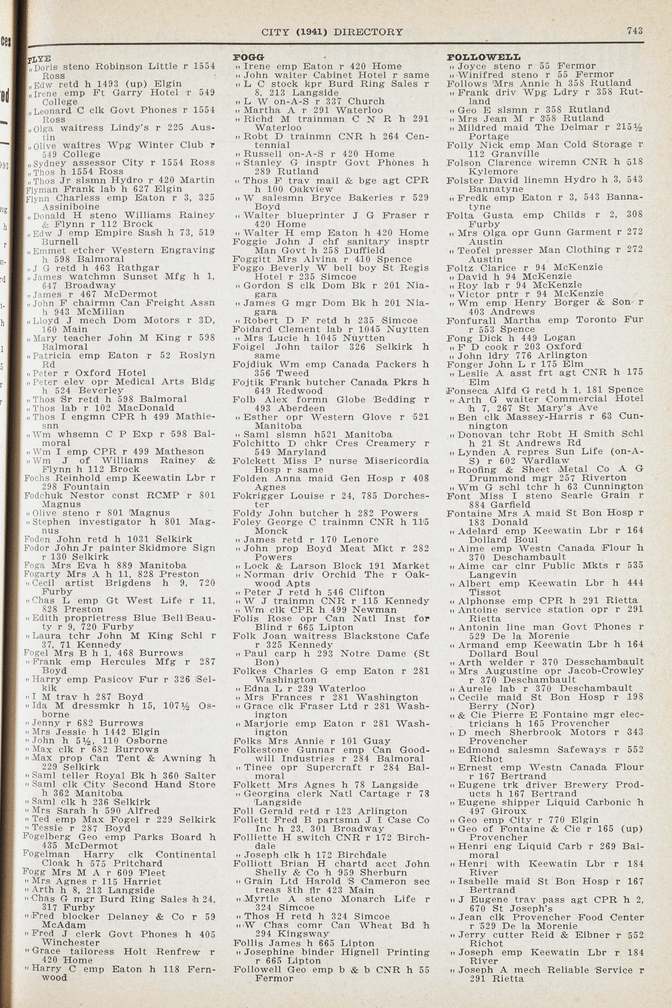 CITY (1941) DIRECTORY
743
FLYE
„ Doris steno Robinson Little r 1554
Ross
„ Edw retd h 1493 (up) Elgin
„ Irene emp Ft Garry Hotel r 549
College
„ Leonard C clk Govt Phones r 1554
Ross
„ Olga waitress Lindy's r 225 Aus-
tin
„ Olive waitres Wpg Winter Club r
549 College
„ Sydney assessor City r 1554 Ross
„ Thos h 1554 Ross
„ Thos Jr slsmn Hydro r 420 Martin
Flyman Frank lab h 627 Elgin
Flynn Charless emp Eaton r 3, 325
Assiniboine
„ Donald H steno Williams Rainey
& Flynn r 112 Brock
„ Edw J emp Empire Sash h 73, 519
Burnell
„ Emmet etcher Western Engraving
h 598 Balmoral
„ J G retd h 463 Rathgar
„ James watchmn Sunset Mfg h 1,
647 Broadway
„ James r 467 McDermot
„ John F chairmn Can Freight Assn
h 943 McMillan
„ Lloyd J mech Dom Motors r 3D,
160 Main
„ Mary teacher John M King r 598
Balmoral
„ Patricia emp Eaton r 52 Roslyn
Rd
„ Peter r Oxford Hotel
„ Peter elev opr Medical Arts Bldg
h 524 Beverley
„ Thos Sr retd h 598 Balmoral
„ Thos lab r 102 MacDonald
„ Thos I engmn CPR h 499 Mathie-
snn
„ Wm whsemn C P Exp r 598 Bal-
moral
„ Wm I emp CPR r 499 Matheson
„ Wm J of Williams Rainey &
Flynn h 112 Brock
Fochs Reinhold emp Keewatin Lbr r
298 Fountain
Fodchuk Nestor const RCMP r 801
Magnus
„ Olive steno r 801 Magnus
„ Stephen investigator h 801 Mag-
nus
Foden John retd h 1031 Selkirk
Fodor John Jr painter Skidmore Sign
r 130 Selkirk
Foga Mrs Eva h 889 Manitoba
Fogarty Mrs A h 11, 828 Preston
„ Cecil artist Brigdens h 9, 720
Furby
„ Chas L emp Gt West Life r 11,
828 Preston
„ Edith proprietress Blue Bell Beau-
ty r 9, 720 Furby
„ Laura tchr John M King Schl r
37, 71 Kennedy
Fogel Mrs B h 1, 468 Burrows
„ Frank emp Hercules Mfg r 287
Boyd
„ Harry emp Pasicov Fur r 326 Sel-
kik
„ I M trav h 287 Boyd
„ Ida M dressmkr h 15, 107½ Os-
borne
„ Jenny r 682 Burrows
„ Mrs Jessie h 1442 Elgin
„ John h 5½, 110 Osborne
„ Max clk r 682 Burrows
„ Max prop Can Tent & Awning h
229 Selkirk
„ Saml teller Royal Bk h 360 Salter
„ Saml clk City Second Hand Store
h 362 Manitoba
„ Saml clk h 236 Selkirk
„ Mrs Sarah h 590 Alfred
„ Ted emp Max Fogel r 229 Selkirk
„ Tessie r 287 Boyd
Fogelberg Geo emp Parks Board h
435 McDermot
Fogelman Harry clk Continental
Cloak h 575 Pritchard
Fogg Mrs M A r 609 Fleet
„ Mrs Agnes r 115 Harriet
„ Arth h 8, 213 Langside
„ Chas G mgr Burd Ring Sales h 24,
317 Furby
„ Fred blocker Delaney & Co r 59
McAdam
„ Fred J clerk Govt Phones h 405
Winchester
„ Grace tailoress Holt Renfrew r
420 Home
„ Harry C emp Eaton h 118 Fern-
wood
FOGG
„ Irene emp Eaton r 420 Home
„ John waiter Cabinet Hotel r same
„ L C stock kpr Burd Ring Sales r
8, 213 Langside
„ L W on-A-S r 337 Church
„ Martha A r 291 Waterloo
„ Richd M trainman C N R h 291
Waterloo
„ Robt D trainmn CNR h 264 Cen-
tennial
„ Russell on-A-S r 420 Home
„ Stanley G insptr Govt Phones h
289 Rutland
„ Thos F trav mail & bge agt CPR
h 100 Oakview
„ W salesmn Bryce Bakeries r 529
Boyd
„ Walter blueprinter J G Fraser r
420 Home
„ Walter H emp Eaton h 420 Home
Foggie John J chf sanitary insptr
Man Govt h 258 Duffield
Foggitt Mrs Alvina r 410 Spence
Foggo Beverly W bell boy St Regis
Hotel r 235 Simcoe
„ Gordon S clk Dom Bk r 201 Nia-
gara
„ James G mgr Dom Bk h 201 Nia-
gara
„ Robert D F retd h 235 Simcoe
Foidard Clement lab r 1045 Nuytten
„ Mrs Lucie h 1045 Nuytten
Foigel John tailor 326 Selkirk h
same
Fojdiuk Wm emp Canada Packers h
356 Tweed
Fojtik Frank butcher Canada Pkrs h
649 Redwood
Folb Alex formn Globe Bedding r
493 Aberdeen
„ Esther opr Western Glove r 521
Manitoba
„ Saml slsmn h521 Manitoba
Folchitto D chkr Cres Creamery r
549 Maryland
Folckett Miss P nurse Misericordia
Hosp r same
Folden Anna maid Gen Hosp r 408
Agnes
Fokrigger Louise r 24, 785 Dorches-
ter
Foldy John butcher h 282 Powers
Foley George C trainmn CNR h 115
Monck
„ James retd r 170 Lenore
„ John prop Boyd Meat Mkt r 282
Powers
„ Lock & Larson Block 191 Market
„ Norman driv Orchid The r Oak-
wood Apts
„ Peter J retd h 546 Clifton
„ W J trainmn CNR r 115 Kennedy
„ Wm clk CPR h 499 Newman
Folis Rose opr Can Natl Inst for
Blind r 665 Lipton
Folk Joan waitress Blackstone Cafe
r 325 Kennedy
„ Paul carp h 293 Notre Dame (St
Bon)
Folkes Charles G emp Eaton r 281
Washington
„ Edna L r 239 Waterloo
„ Mrs Frances r 281 Washington
„ Grace clk Fraser Ltd r 281 Wash-
ington
„ Marjorie emp Eaton r 281 Wash-
ington
Folks Mrs Annie r 101 Guay
Folkestone Gunnar emp Can Good-
will Industries r 284 Balmoral
„ Tinee opr Supercraft r 284 Bal-
moral
Folkett Mrs Agnes h 78 Langside
„ Georgina clerk Natl Cartage r 78
Langside
Foll Gerald retd r 123 Arlington
Follett Fred B partsmn J I Case Co
Inc h 23, 301 Broadway
Folliette H switch CNR r 172 Birch-
dale
„ Joseph clk h 172 Birchdale
Folliott Brian H chartd acct John
Shelly & Co h 959 Sherburn
„ Grain Ltd Harold S Cameron sec
treas 8th flr 423 Main
„ Myrtle A steno Monarch Life r
324 Simcoe
„ Thos H retd h 324 Simcoe
„ W Chas comr Can Wheat Bd h
294 Kingsway
Follis James h 665 Lipton
„ Josephine binder Hignell Printing
r 665 Lipton
Followell Geo emp b & b CNR h 55
Fermor
FOLLOWELL
„ Joyce steno r 55 Fermor
„ Winifred steno r 55 Fermor
Follows Mrs Annie h 358 Rutland
„ Frank driv Wpg Ldry r 358 Rut-
land
„ Geo E slsmn r 358 Rutland
„ Mrs Jean M r 358 Rutland
„ Mildred maid The Delmar r 215½
Portage
Folly Nick emp Man Cold Storage r
112 Granville
Folson Clarence wiremn CNR h 518
Kylemore
Folster David linemn Hydro h 3, 543
Bannatyne
„ Fredk emp Eaton r 3, 543 Banna-
tyne
Folta Gusta emp Childs r 2, 308
Furby
„ Mrs Olga opr Gunn Garment r 272
Austin
„ Teofel presser Man Clothing r 272
Austin
Foltz Clarice r 94 McKenzie
„ David h 94 McKenzie
„ Roy lab r 94 McKenzie
„ Victor pntr r 94 McKenzie
„ Wm emp Henry Borger & Son r
403 Andrews
Fonfurall Martha emp Toronto Fur
r 553 Spence
Fong Dick h 449 Logan
„ F D cook r 203 Oxford
„ John ldry 776 Arlington
Fonger John L r 175 Elm
„ Leslie A asst frt agt CNR h 175
Elm
Fonseca Alfd G retd h 1, 181 Spence
„ Arth G waiter Commercial Hotel
h 7, 267 St Mary's Ave
„ Ben clk Massey-Harris r 63 Cun-
nington
„ Donovan tchr Robt H Smith Schl
h 21 St Andrews Rd
„ Lynden A repres Sun Life (on-A-
S) r 602 Wardlaw
„ Roofing & Sheet Metal Co A G
Drummond mgr 257 Riverton
„ Wm G schl tchr h 63 Cunnington
Font Miss I steno Searle Grain r
884 Garfield
Fontaine Mrs A maid St Bon Hosp r
183 Donald
„ Adelard emp Keewatin Lbr r 164
Dollard Boul
„ Aime emp Westn Canada Flour h
370 Deschambault
„ Aime car clnr Public Mkts r 535
Langevin
„ Albert emp Keewatin Lbr h 444
Tissot
„ Alphonse emp CPR h 291 Rietta
„ Antoine service station opr r 291
Rietta
„ Antonin line man Govt Phones r
529 De la Morenie
„ Armand emp Keewatin Lbr h 164
Dollard Boul
„ Arth welder r 370 Desschambault
„ Mrs Augustine opr Jacob-Crowley
r 370 Deschambault
„ Aurele lab r 370 Deschambault
„ Cecile maid St Bon Hosp r 198
Berry (Nor)
„ & Cie Pierre E Fontaine mgr elec-
tricians h 165 Provencher
„ D mech Sherbrook Motors r 343
Provencher
„ Edmond salesmn Safeways r 552
Richot
„ Ernest emp Westn Canada Flour
r 167 Bertrand
„ Eugene trk driver Brewery Prod-
ucts h 167 Bertrand
„ Eugene shipper Liquid Carbonic h
497 Giroux
„ Geo emp City r 770 Elgin
„ Geo of Fontaine & Cie r 165 (up)
Provencher
„ Henri eng Liquid Carb r 269 Bal-
moral
„ Henri with Keewatin Lbr r 184
River
„ Isabelle maid St Bon Hosp r 167
Bertrand
„ J Eugene trav pass agt CPR h 2,
670 St Joseph's
„ Jean clk Provencher Food Center
r 529 De la Morenie
„ Jerry cutter Reid & Elbner r 552
Richot
„ Joseph emp Keewatin Lbr r 184
River
„ Joseph A mech Reliable Service r
291 Rietta